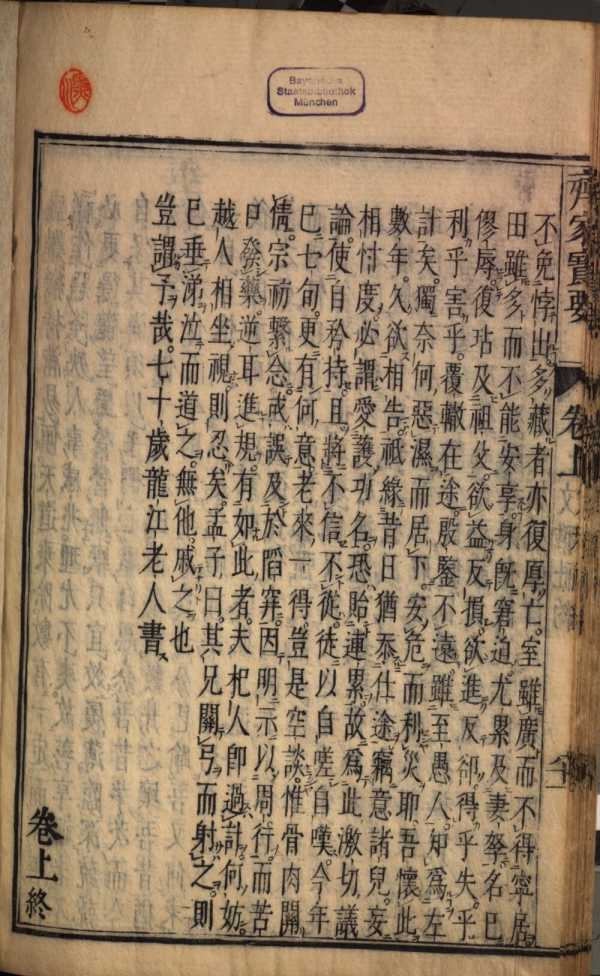 Bayerische
Staatsbibliothek
München
齊家寶要
卷上
不免悖出多藏者亦復厚亡室雖廣而不得寧居
田雖多而不能安享身旣窘迫尤累及妻孥名已
僇辱復玷及祖父欲益反損欲進反卻得乎失乎
利乎害乎覆轍在途殷鑒不遠雖至愚人知爲左
計矣獨奈何惡濕而居下安危而利災耶吾懷此
數年久欲相告祇緣昔日猶忝仕途竊意諸兒妄
相忖度必謂愛護功名恐貽連累故爲此激切議
論使自矜持且將不信不從徒以自嗟自嘆今年
已七旬更有何意老來一得豈是空談惟骨肉關
情宗祊繫念戒誤及於陷穽因明示以周行而苦
口發藥逆耳進規有如此者夫杞人卽過計何妨
越人相坐視則忍矣孟子曰其兄關弓而射之則
已垂涕泣而道之無他戚之也
豈謂予哉七十歲龍江老人書
卷上終